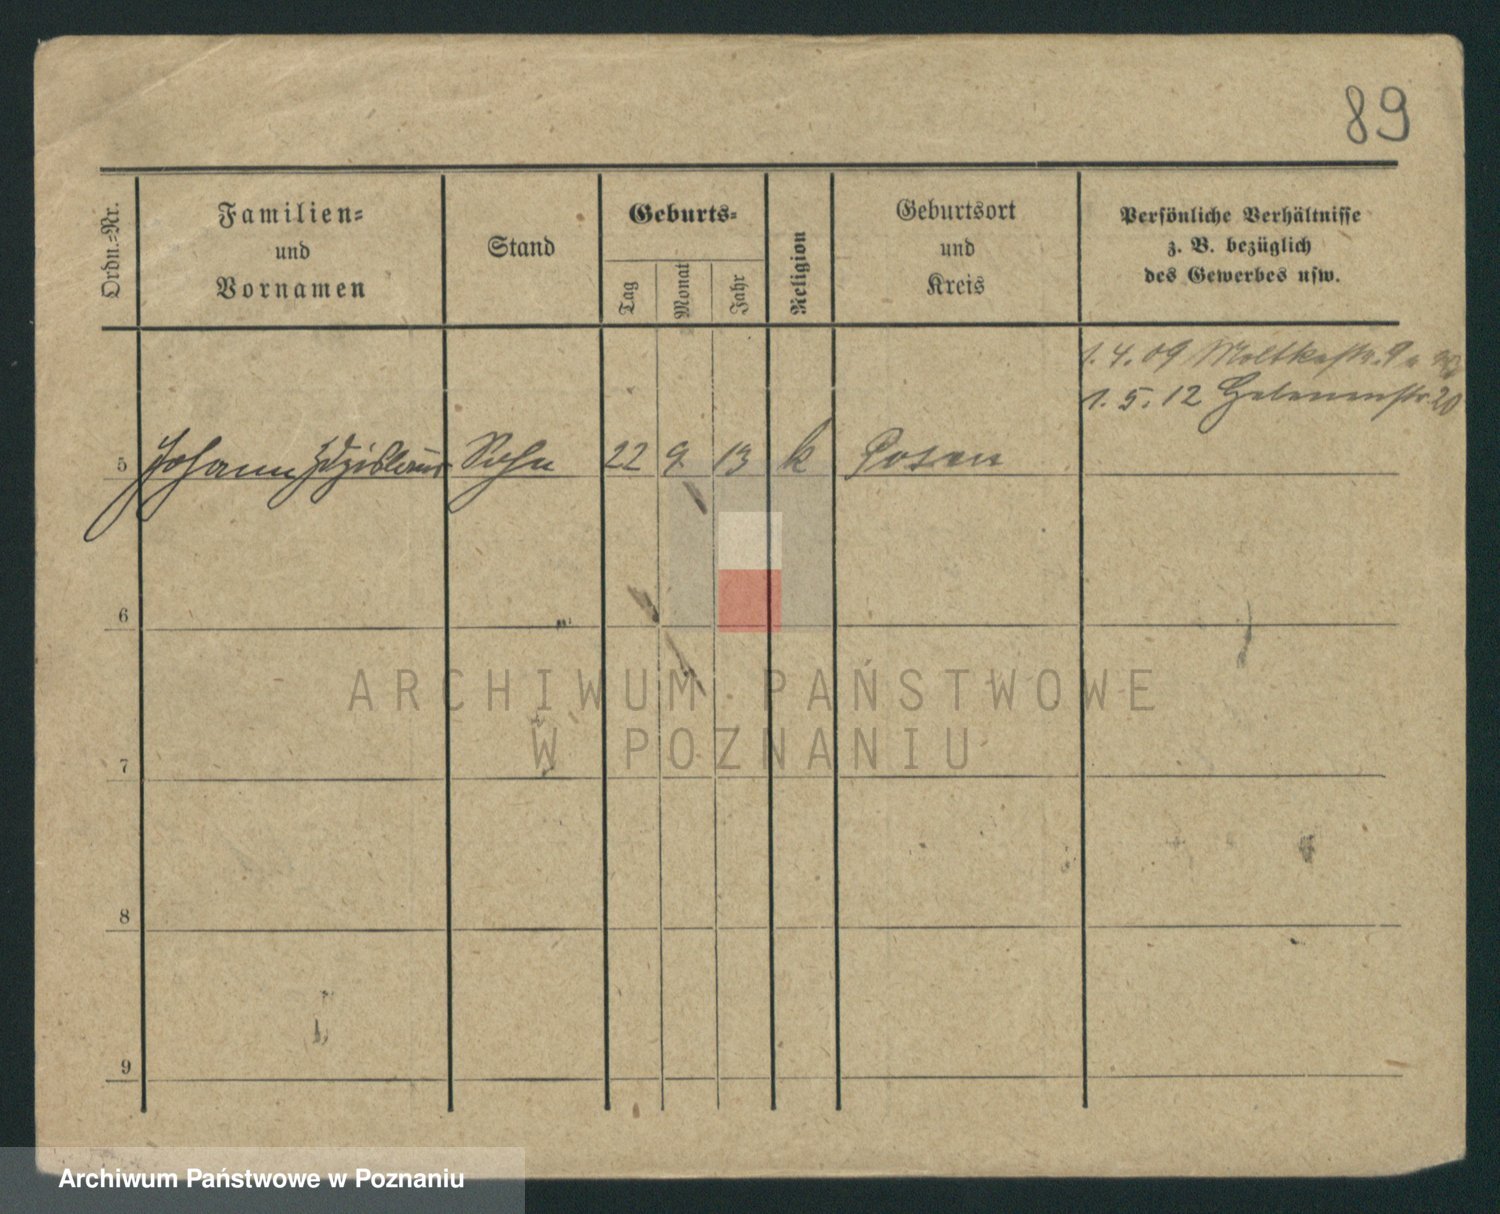 89
Ordn.=Nr.
Familien=
und
Vornamen
Stand
Geburts=
Tag
Monat
Jahr
Religion
Geburtsort
und
Kreis
Persönliche Verhältnisse
z. B. bezüglich
des Gewerbes usw.
1. 4. 09 Moltkestr. 9
1. 5. 12 Helenenstr. 20
5 Johann Zdzislaus Sohn 22 9 13 k Posen
6
7
8
9
ARCHIWUM PAŃSTWOWE
W POZNANIU
Archiwum Państwowe w Poznaniu